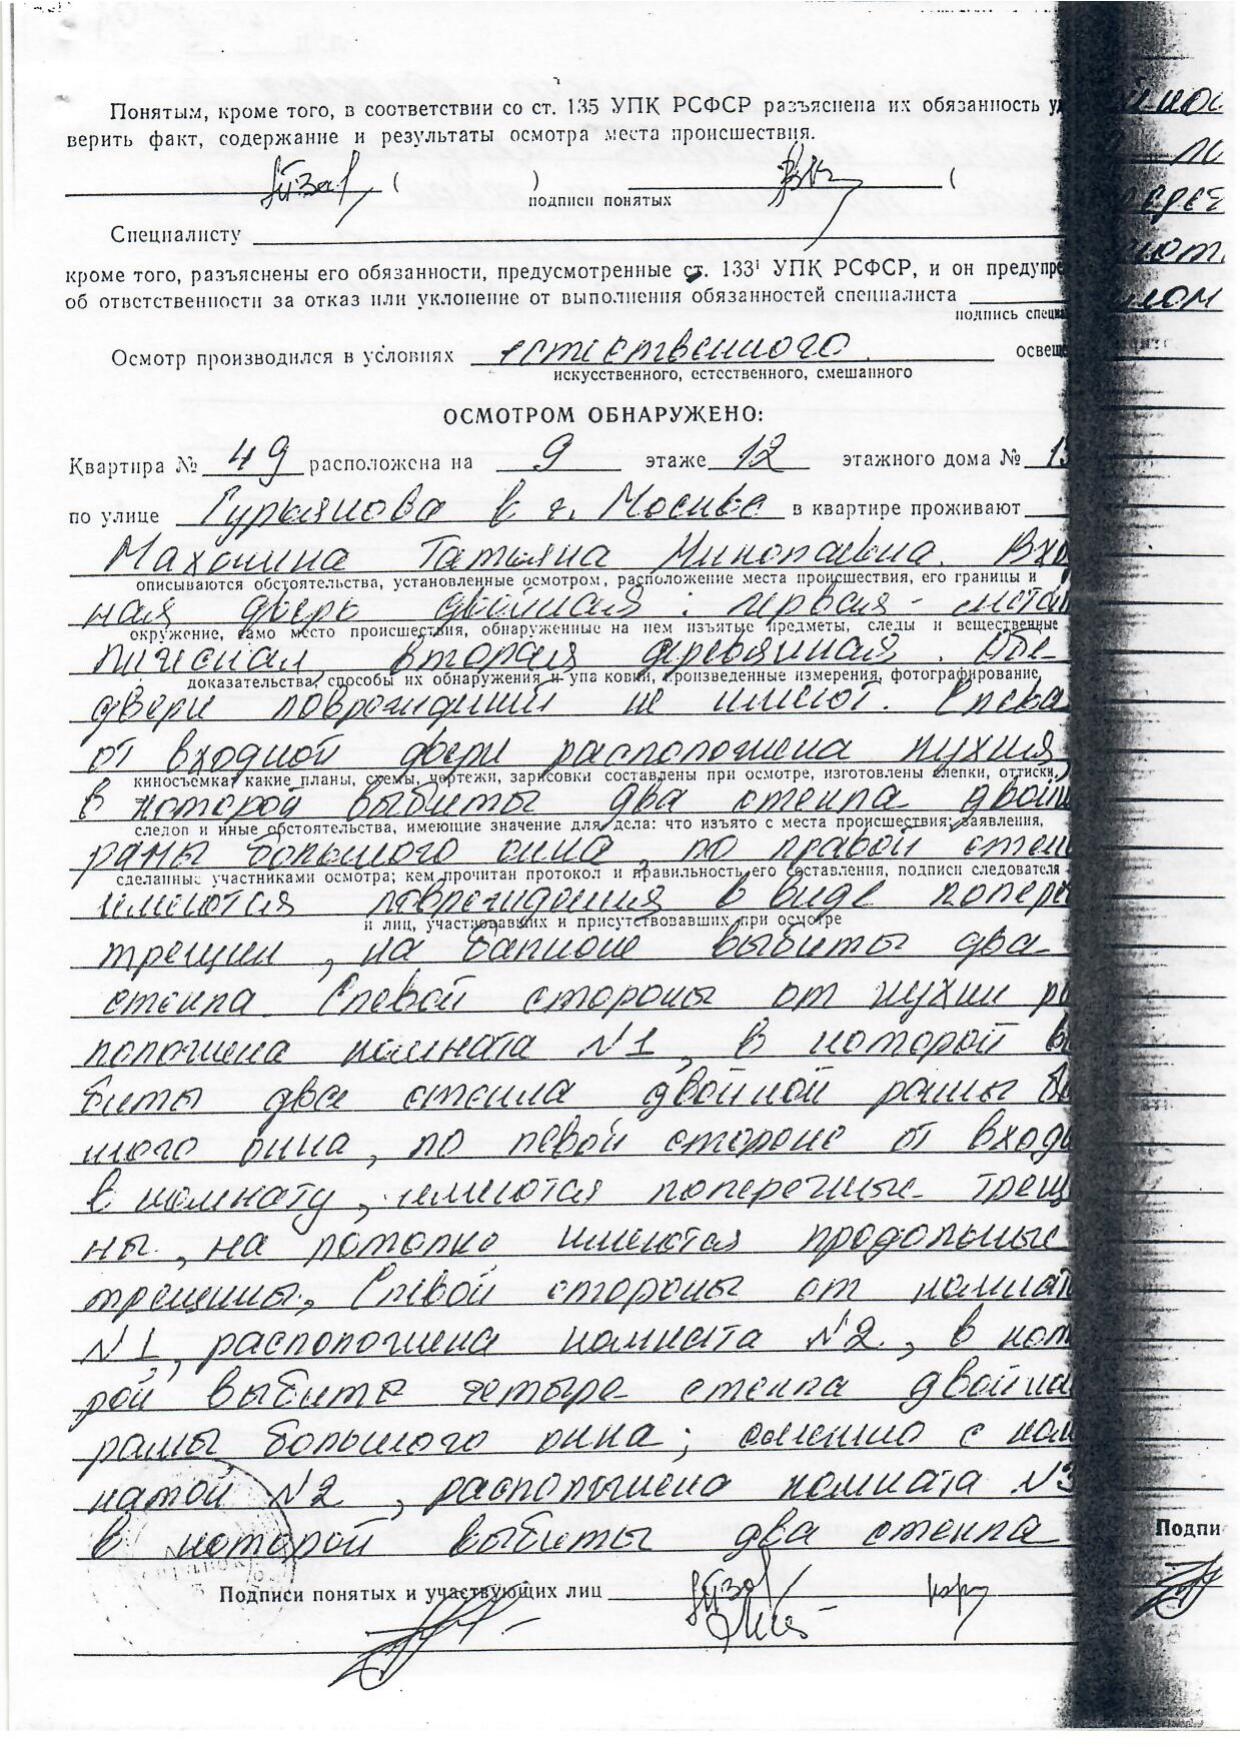 Понятым, кроме того, в соответствии со ст. 135 УПК РСФСР разъяснена их обязанность у
верить факт, содержание и результаты осмотра места происшествия.
( ) (
подписи понятых
Специалисту
кроме того, разъяснены его обязанности, предусмотренные ст. 133¹ УПК РСФСР, и он предупре
об ответственности за отказ или уклонение от выполнения обязанностей специалиста
подпись специ
Осмотр производился в условиях естественного освещ
искусственного, естественного, смешанного
ОСМОТРОМ ОБНАРУЖЕНО:
Квартира № 49 расположена на 9 этаже 12 этажного дома № 1
по улице Гурьянова в г. Москве в квартире проживают
Махонина Татьяна Николаевна. Вхо
описываются обстоятельства, установленные осмотром, расположение места происшествия, его границы и
ная дверь двойная: первая - метал
окружение, само место происшествия, обнаруженные на нем изъятые предметы, следы и вещественные
лическая, вторая деревянная. Обе
доказательства, способы их обнаружения и упаковки, произведенные измерения, фотографирование,
двери повреждений не имеют. Слева
от входной двери расположена кухня,
киносъемка, какие планы, схемы, чертежи, зарисовки составлены при осмотре, изготовлены слепки, оттиски,
в которой выбиты два стекла двойн
следов и иные обстоятельства, имеющие значение для дела: что изъято с места происшествия; заявления,
рамы большого окна, по правой стен
сделанные участниками осмотра; кем прочитан протокол и правильность его составления, подписи следователя
имеются повреждения в виде попере
и лиц, участвовавших и присутствовавших при осмотре
трещин, на балконе выбиты два
стекла. С левой стороны от кухни ра
положена комната №1, в которой вы
биты два стекла двойной рамы бо
шого окна, по левой стороне от входа
в комнату, имеются поперечные трещ
ны, на потолке имеются продольные
трещины. С левой стороны от комнат
№1, расположена комната №2, в кот
рой выбито четыре стекла двойна
рамы большого окна; смежно с ком
натой №2, расположена комната №3
в которой выбиты два стекла
Подписи понятых и участвующих лиц
Подпи